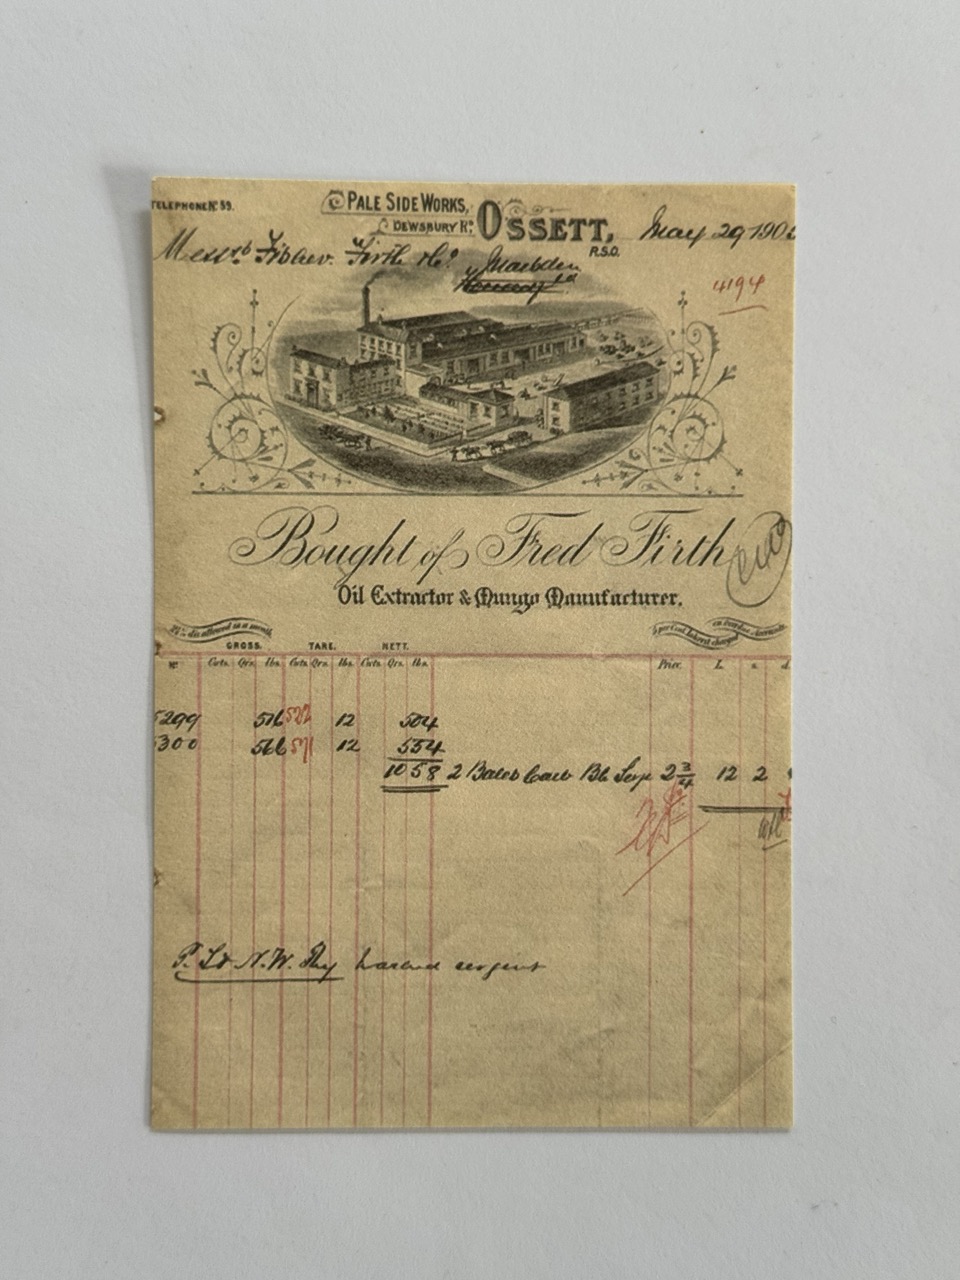 TELEPHONE Nº 59.
PALE SIDE WORKS,
DEWSBURY Rᴰ.
OSSETT,
R.S.O.
May 29 190
Messrs Fisher. Firth & Co
Marsden
4194
Bought of Fred Firth
Oil Extractor & Mungo Manufacturer.
2½% dis allowed in a month.
5 per Cent. Interest charged on overdue Accounts
GROSS. TARE. NETT.
Nº Cwts. Qrs. lbs. Cwts. Qrs. lbs. Cwts. Qrs. lbs. Price. L. s. d.
5299 516 522 12 504
5300 566 571 12 554
1058 2 Bales Carb Bk Serge 2¾ 12 2
P. L & N.W. Rly